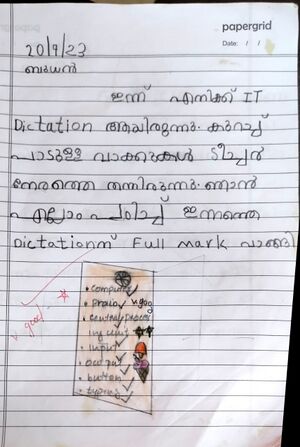 papergrid
Date: / /
20/9/23
ബുധൻ
ഇന്ന് എനിക്ക് IT
Dictation ആയിരുന്നു. കുറച്ച്
പാടുള്ള വാക്കുകൾ ടീച്ചർ
നേരത്തെ തന്നിരുന്നു. ഞാൻ
എല്ലാം പഠിച്ച് ഇന്നത്തെ
Dictationന് Full mark വാങ്ങി
v. good
• compute
v. good
• central proces
ing unit
• input
• out put
• button